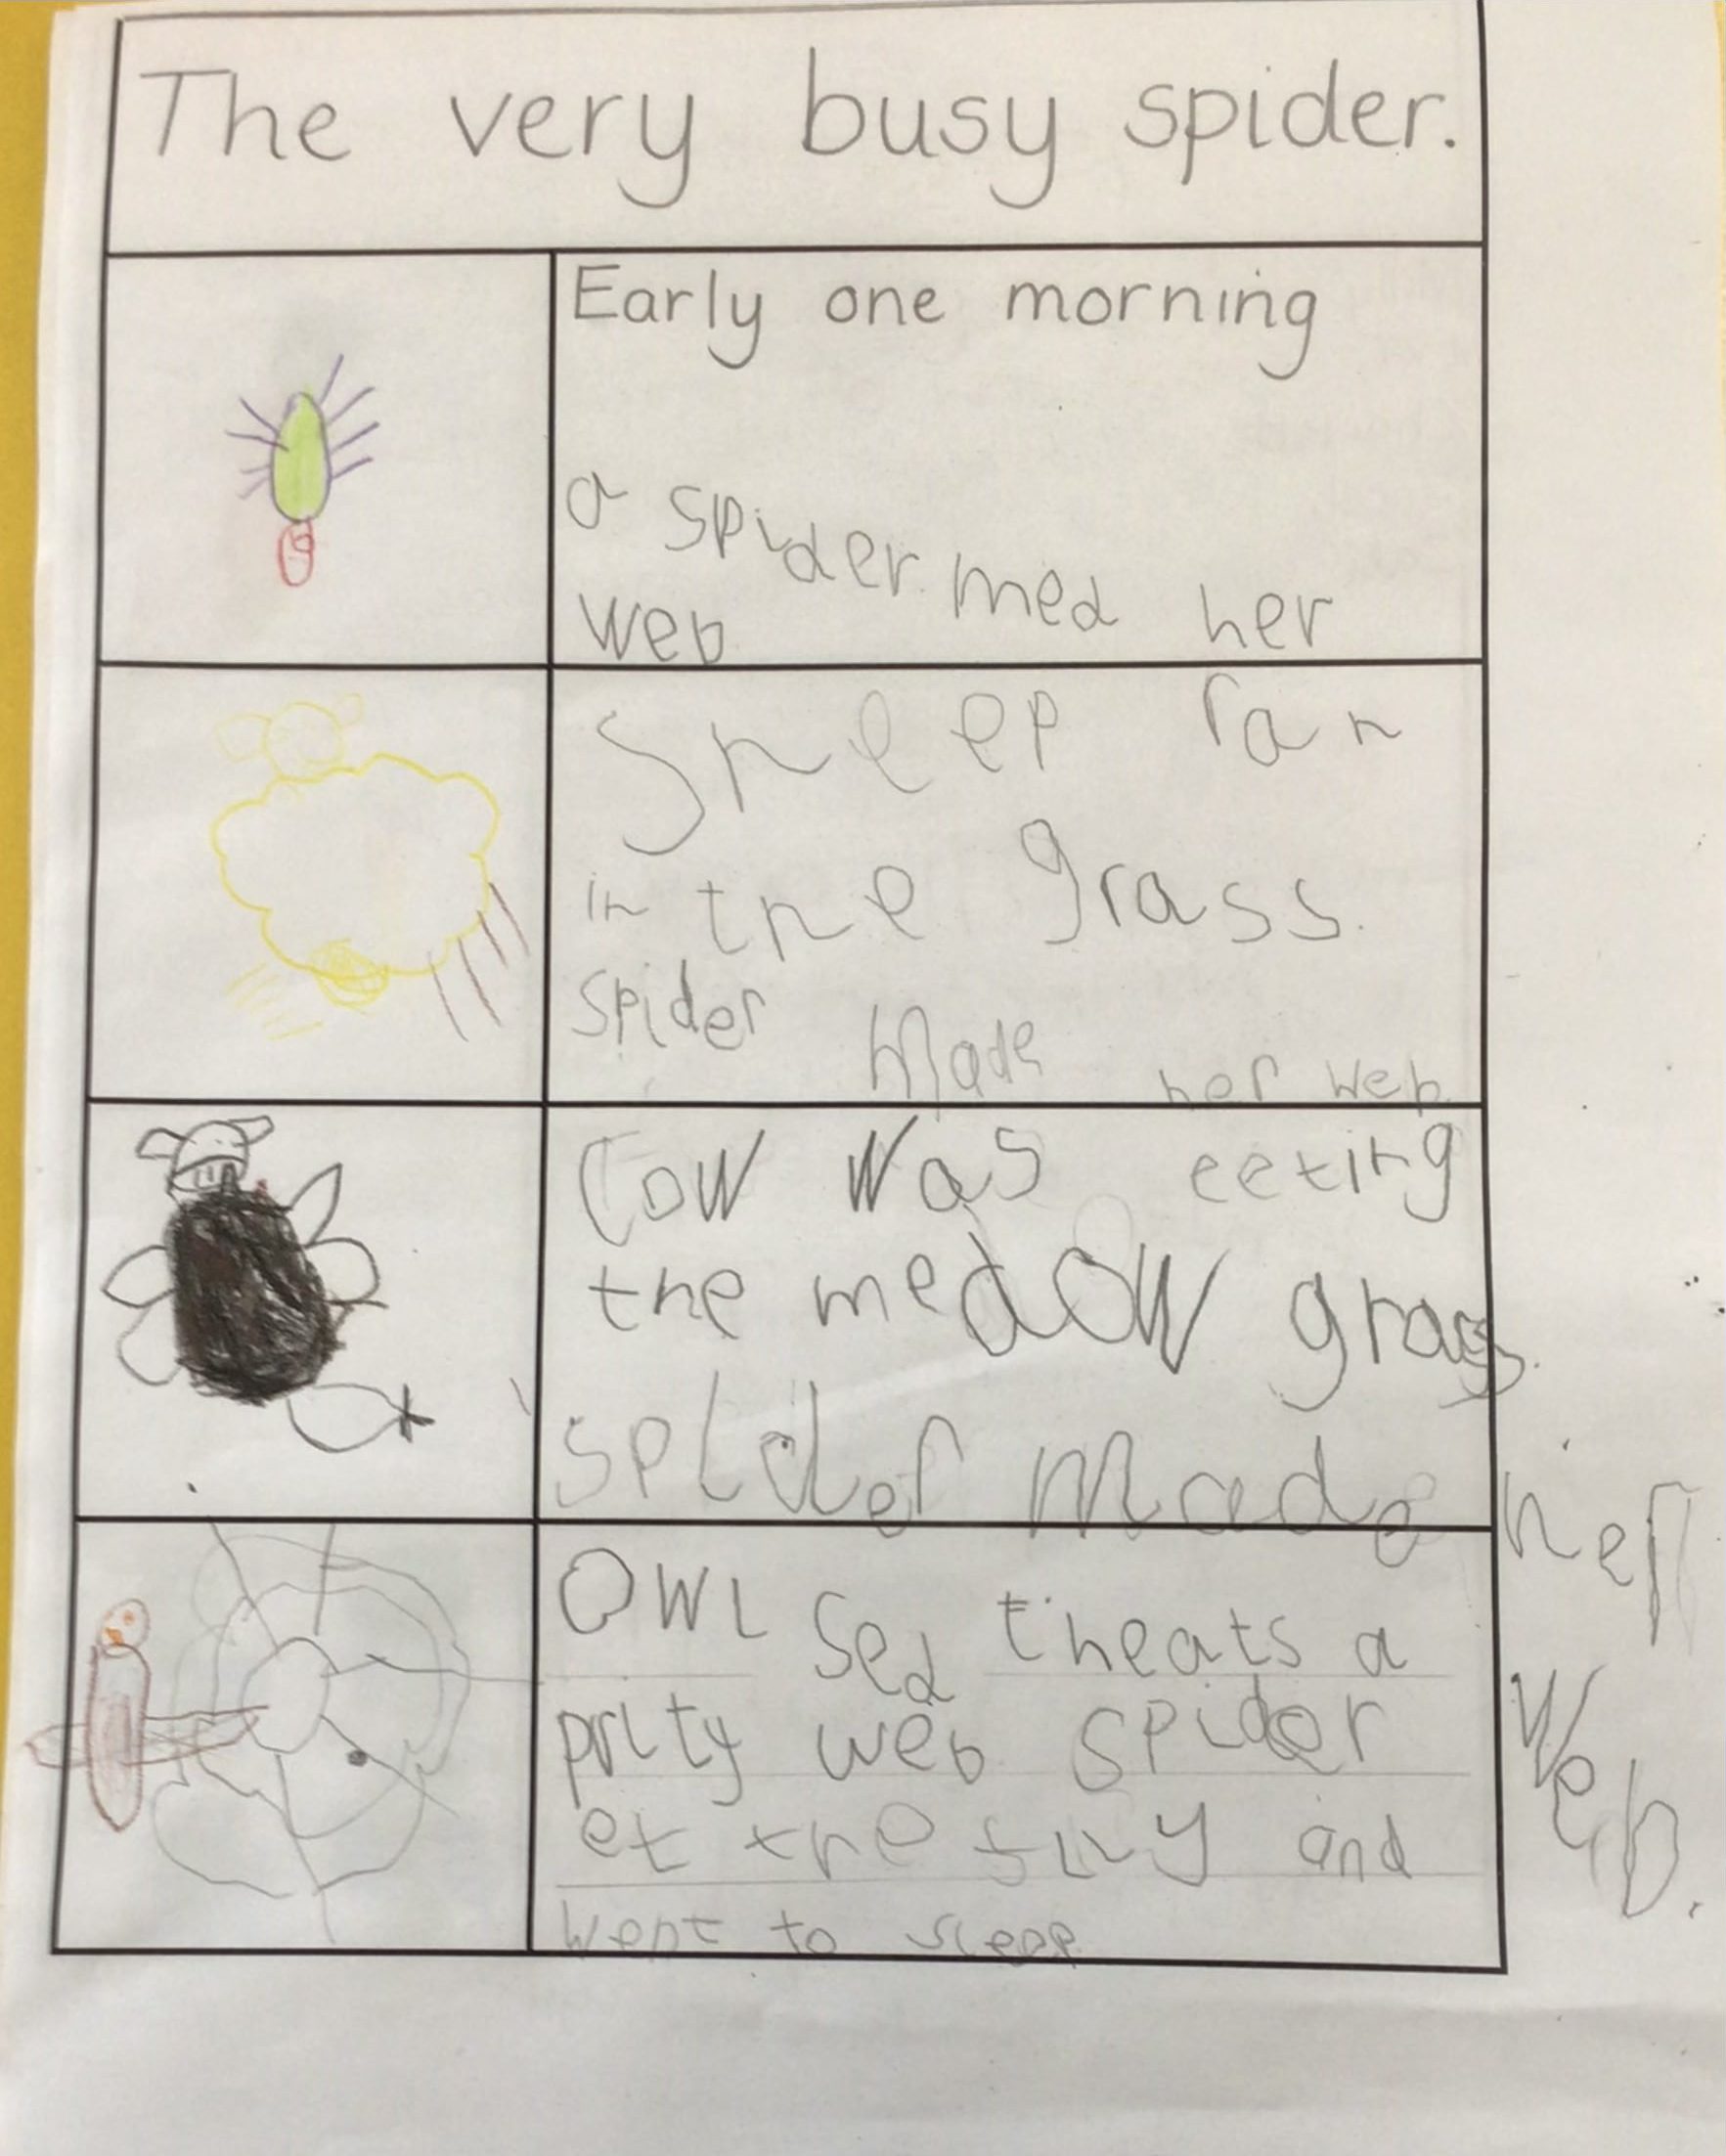 The very busy spider.
Early one morning
a spider med her
web
Sheep ran
in the grass.
spider made her web
Cow was eeting
the medow grass.
spider made her
web.
Owl sed theats a
prity web spider
et the fly and
went to sleep